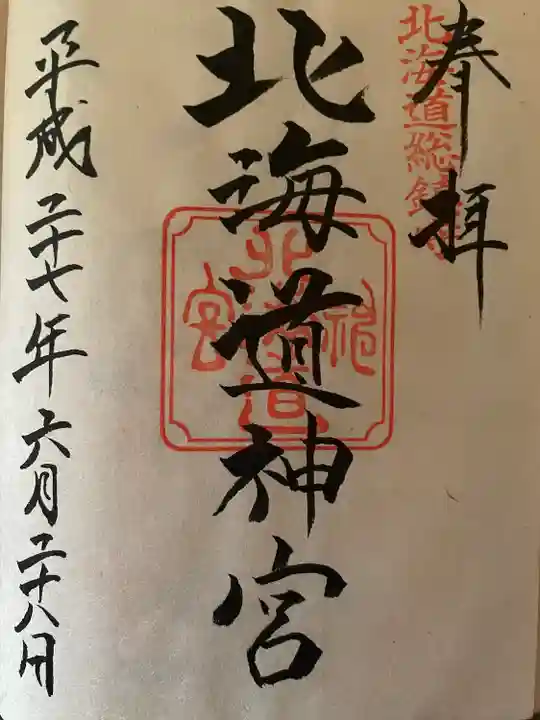 奉拝
北海道総鎮守
北海道神宮
北海道神宮
平成二十七年六月二十八日